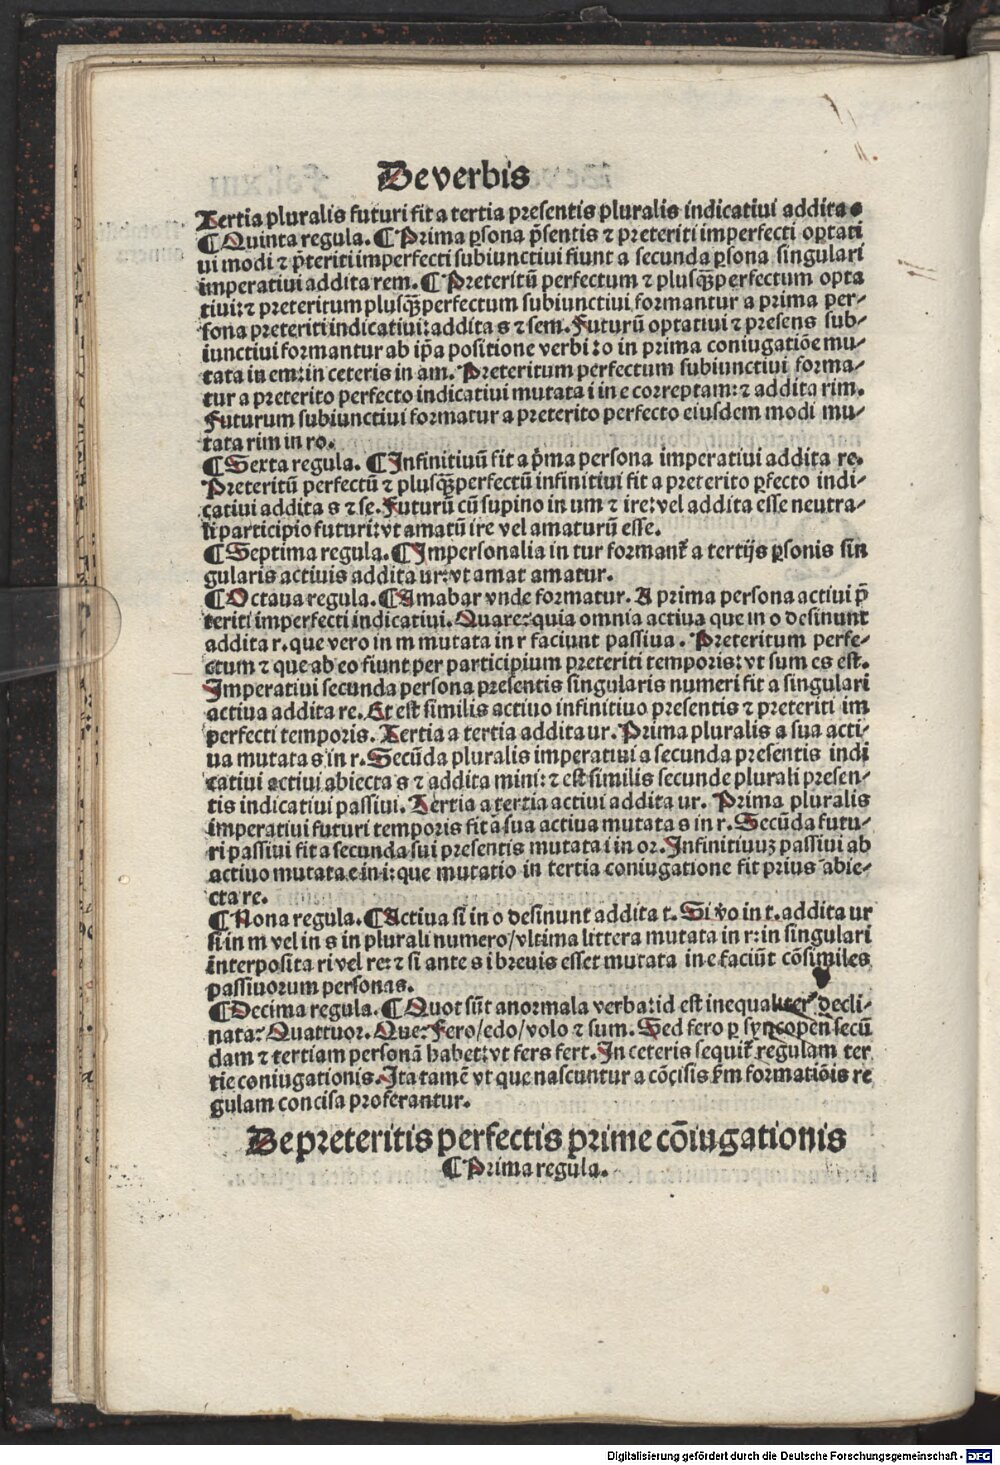 De verbis
Tertia pluralis futuri fit a tertia presentis pluralis indicatiui addita
¶ Quinta regula. ¶ Prima ꝑsona p̃sentis ⁊ preteriti imperfecti optati
ui modi ⁊ p̃teriti imperfecti subiunctiui fiunt a secunda ꝑsona singulari
imperatiui addita rem. ¶ Preteritũ perfectum ⁊ plusq̃ꝫperfectum opta
tiui: ⁊ preteritum plusq̃ꝫperfectum subiunctiui formantur a prima per-
sona preteriti indicatiui: addita s ⁊ sem. Futurũ optatiui ⁊ presens sub-
iunctiui formantur ab ip̃a positione verbi: o in prima coniugatiõe mu-
tata in em: in ceteris in am. Preteritum perfectum subiunctiui forma-
tur a preterito perfecto indicatiui mutata i in e correptam: ⁊ addita rim.
Futurum subiunctiui formatur a preterito perfecto eiusdem modi mu-
tata rim in ro.
¶ Sexta regula. ¶ Infinitiuũ fit a p̃ma persona imperatiui addita re.
Preteritũ perfectũ ⁊ plusq̃ꝫperfectũ infinitiui fit a preterito ꝑfecto indi-
catiui addita s ⁊ se. Futurũ cũ supino in um ⁊ ire: vel addita esse neutra-
li participio futuri: vt amatũ ire vel amaturũ esse.
¶ Septima regula. ¶ Impersonalia in tur formant᷑ a tertijs ꝑsonis sin
gularis actiuis addita ur: vt amat amatur.
¶ Octaua regula. ¶ Amabar vnde formatur. A prima persona actiui p̃
teriti imperfecti indicatiui. Quare: quia omnia actiua que in o desinunt
addita r. que vero in m mutata in r faciunt passiua. Preteritum perfe-
ctum ⁊ que ab eo fiunt per participium preteriti temporis: vt sum es est.
Imperatiui secunda persona presentis singularis numeri fit a singulari
actiua addita re. Et est similis actiuo infinitiuo presentis ⁊ preteriti im
perfecti temporis. Tertia a tertia addita ur. Prima pluralis a sua acti-
ua mutata s in r. Secũda pluralis imperatiui a secunda presentis indi
catiui actiui abiecta s ⁊ addita mini: ⁊ est similis secunde plurali presen-
tis indicatiui passiui. Tertia a tertia actiui addita ur. Prima pluralis
imperatiui futuri temporis fit a sua actiua mutata s in r. Secũda futu-
ri passiui fit a secunda sui presentis mutata i in or. Infinitiuuꝫ passiui ab
actiuo mutata e in i: que mutatio in tertia coniugatione fit prius abie-
cta re.
¶ Nona regula. ¶ Actiua si in o desinunt addita r. Si ṽo in t. addita ur
si in m vel in s in plurali numero/vltima littera mutata in r: in singulari
interposita ri vel re: ⁊ si ante s i breuis esset mutata in e faciũt cõsimiles
passiuorum personas.
¶ Decima regula. ¶ Quot sũt anormala verba: id est inequaliter decli-
nata: Quattuor. Que: Fero/edo/volo ⁊ sum. Sed fero ꝑ syncopen secũ
dam ⁊ tertiam personã habet: vt fers fert. In ceteris sequit᷑ regulam ter
tie coniugationis. Ita tamẽ vt que nascuntur a cõcisis ẜm formatiõis re
gulam concisa proferantur.
De preteritis perfectis prime cõiugationis
¶ Prima regula.
Digitalisierung gefördert durch die Deutsche Forschungsgemeinschaft - DFG